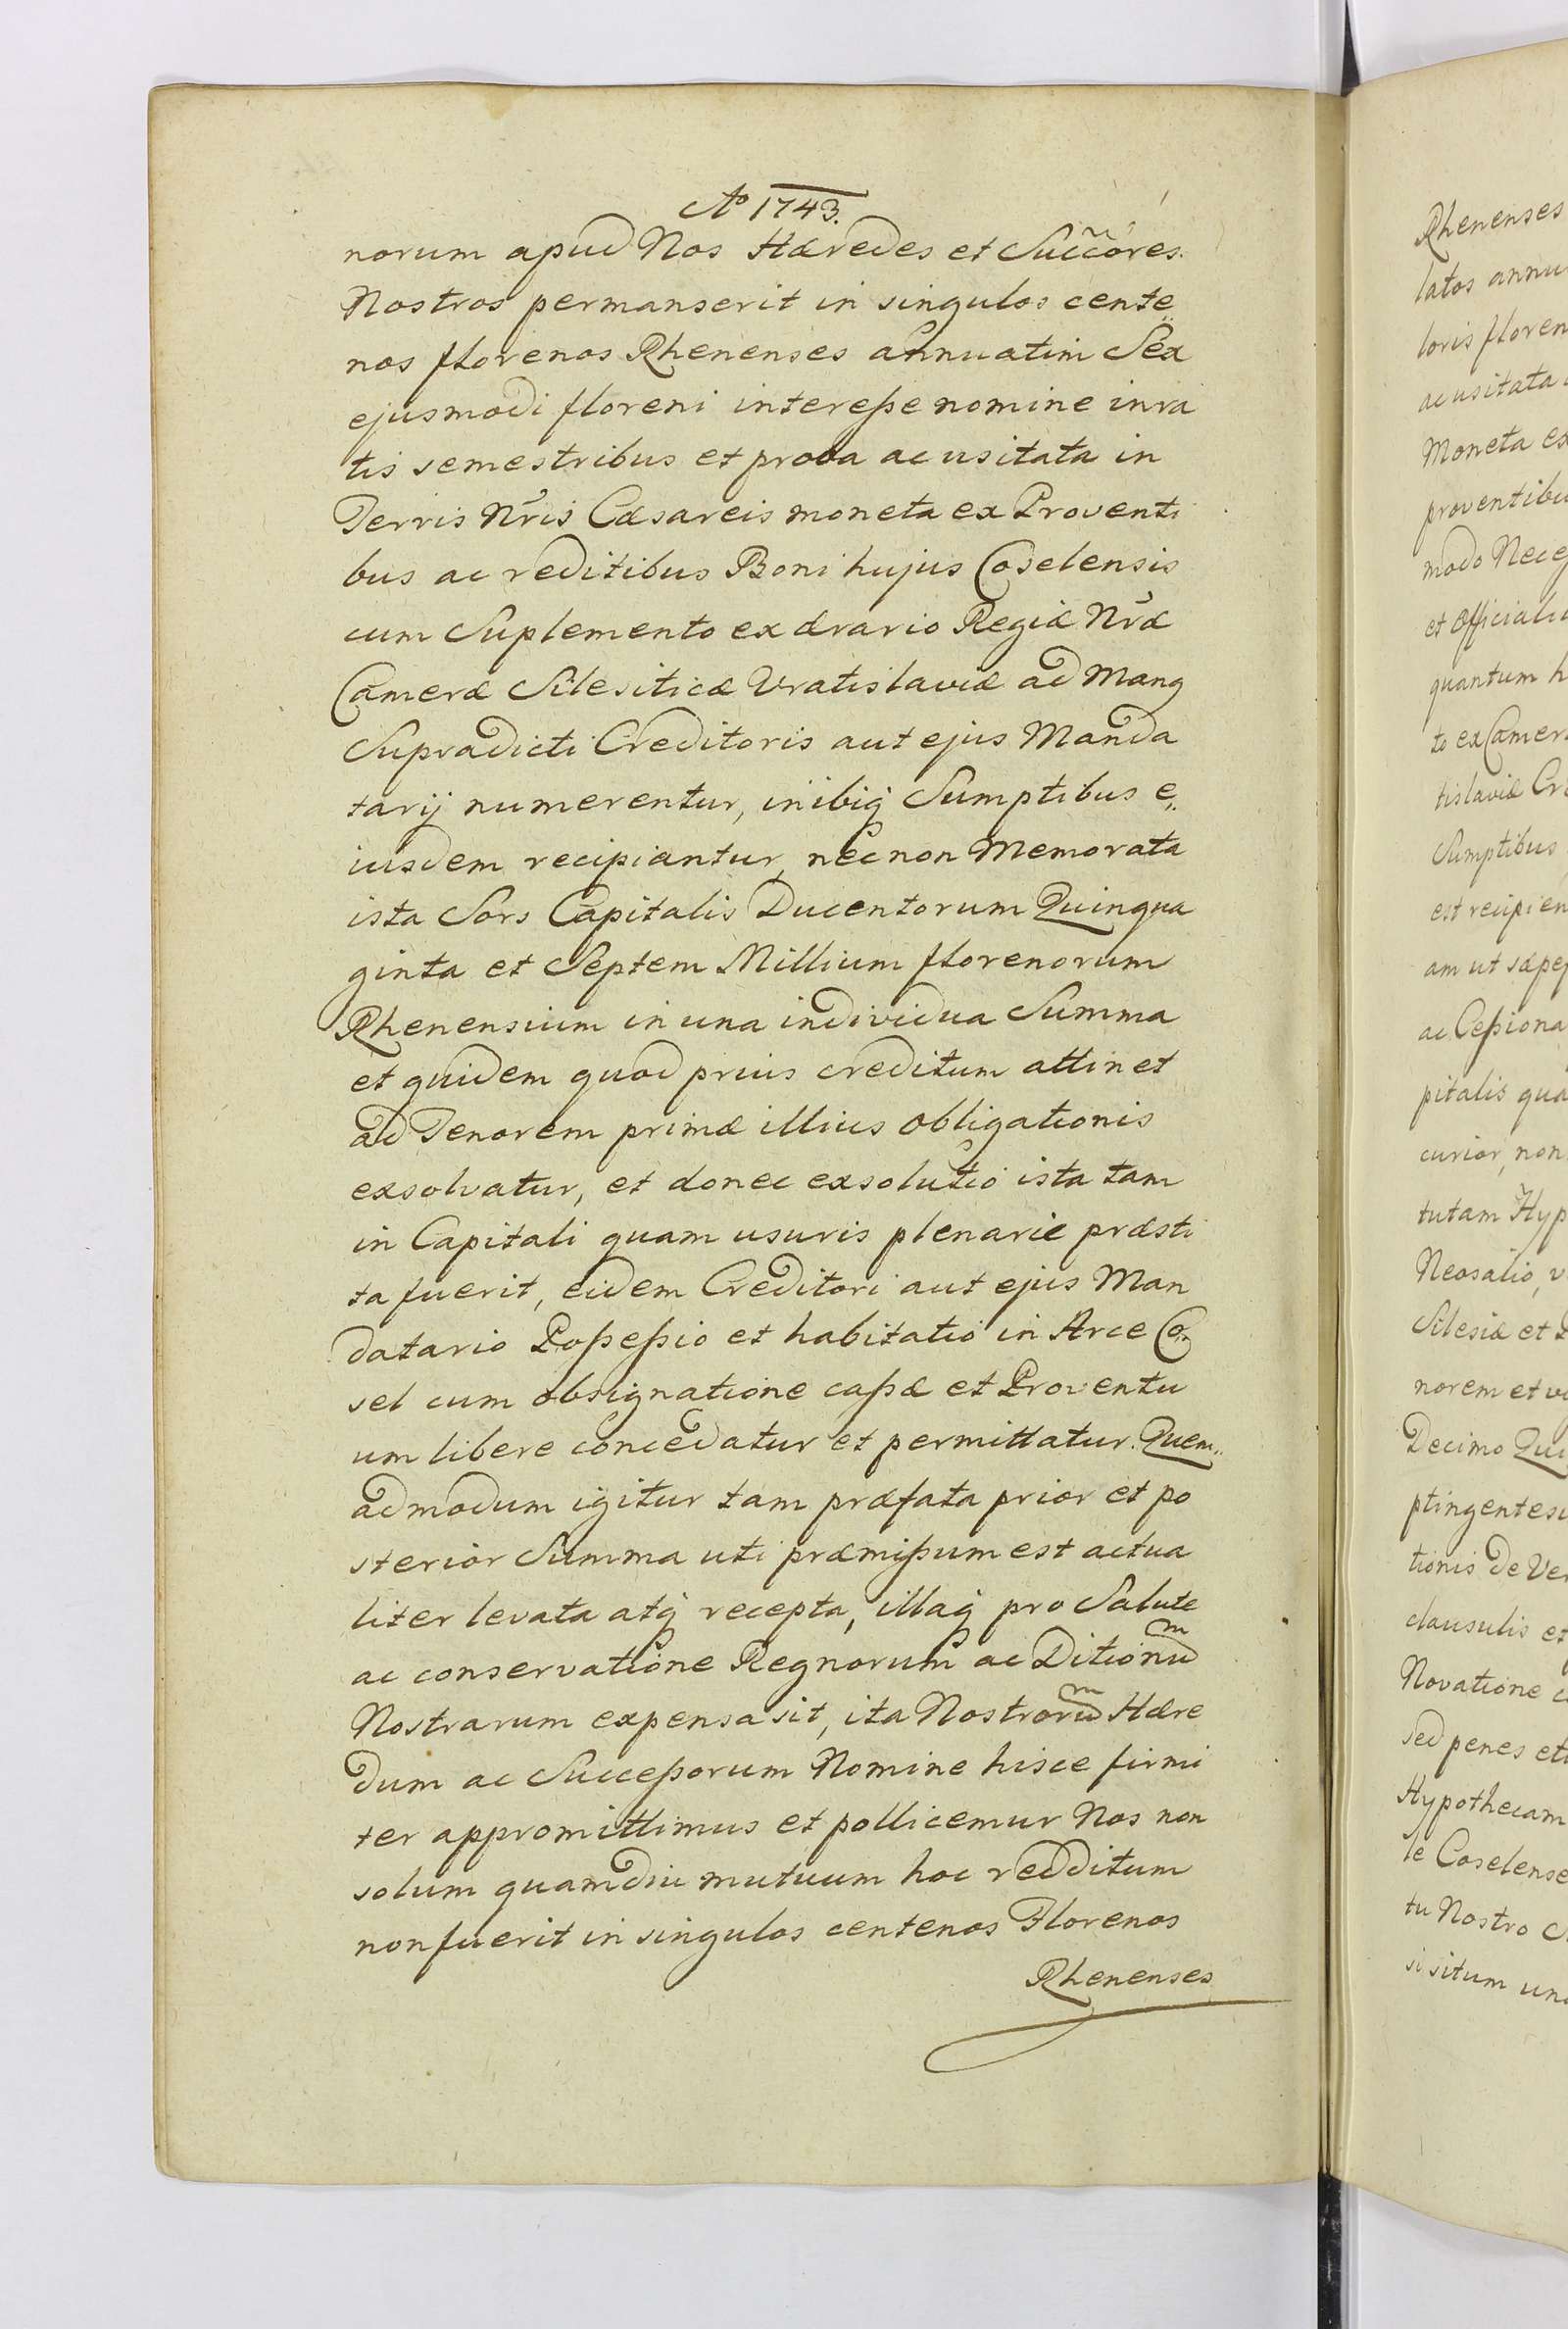 Aº 1743.
norum apud Nos Hæredes et Succ̃ores.
Nostros permanserit in singulos cente„
nos florenos Rhenenses annuatim Sex
ejusmodi floreni interesse nomine in ra
tis semestribus et proba ac usitata in
Terris Nr̃is Cæsareis moneta ex Proventi
bus ac reditibus Boni hujus Coselensis
cum Suplemento ex ærario Regiæ Nr̃æ
Cameræ Silesiticæ Vratislaviæ ad Mang
Supradicti Creditoris aut ejus Manda
tarij numerentur, inibiq; Sumptibus e„
iusdem recipiantur, nec non Memorata
ista Sors Capitalis Ducentorum Quinqua
ginta et Septem Millium florenorum
Rhenensium in una individua Summa
et quidem quod prius creditum attinet
ad Tenorem primæ illius obligationis
exsolvatur, et donec exsolutio ista tam
in Capitali quam usuris plenarie præsti
ta fuerit, eidem Creditori aut ejus Man
datario Possessio et habitatio in Arce Co„
sel cum obsignatione cassæ et Proventu
um libere concedatur et permittatur. Quem„
admodum igitur tam præfata prior et po
sterior Summa uti præmissum est actua
liter levata atq; recepta, illaq; pro Salute
ac conservatione Regnorum ac Ditionum
Nostrarum expensa sit, ita Nostrorum Hære
dum ac Successorum Nomine hisce firmi
ter appromittimus et pollicemur Nos non
solum quamdiu mutuum hoc redditum
non fuerit in singulos centenos Florenos
Rhenenses
Rhenenses
latos annu
loris floren
ac usitata
Moneta ex
proventibu
modo Nece
et Officiali
quantum h
to ex Camer
tislaviæ Cr
Sumptibus
est recipien
am ut sæpe
ac Cessiona
pitalis qua
curior, non
tutam Hyp
Neosalio, v
Silesiæ et
norem et v
Decimo Qui
ptingentes
tionis de Ve
clausulis et
Novatione
sed penes et
Hypothecam
le Coselense
tu Nostro
si situm un